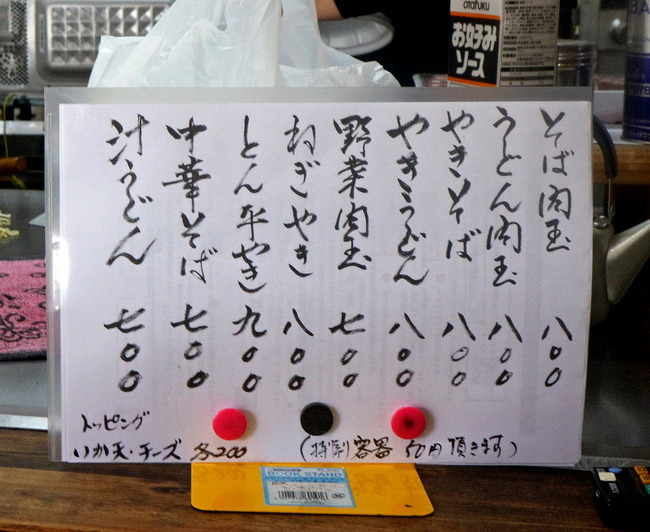 そば肉玉 八〇〇
うどん肉玉 八〇〇
やきそば 八〇〇
やきうどん 八〇〇
野菜肉玉 七〇〇
ねぎやき 八〇〇
とん平やき 九〇〇
中華そば 七〇〇
汁うどん 七〇〇
トッピング
いか天・チーズ 各200
(持別容器 50円頂きます)
otafuku
お好み
ソース
BOOK STAND